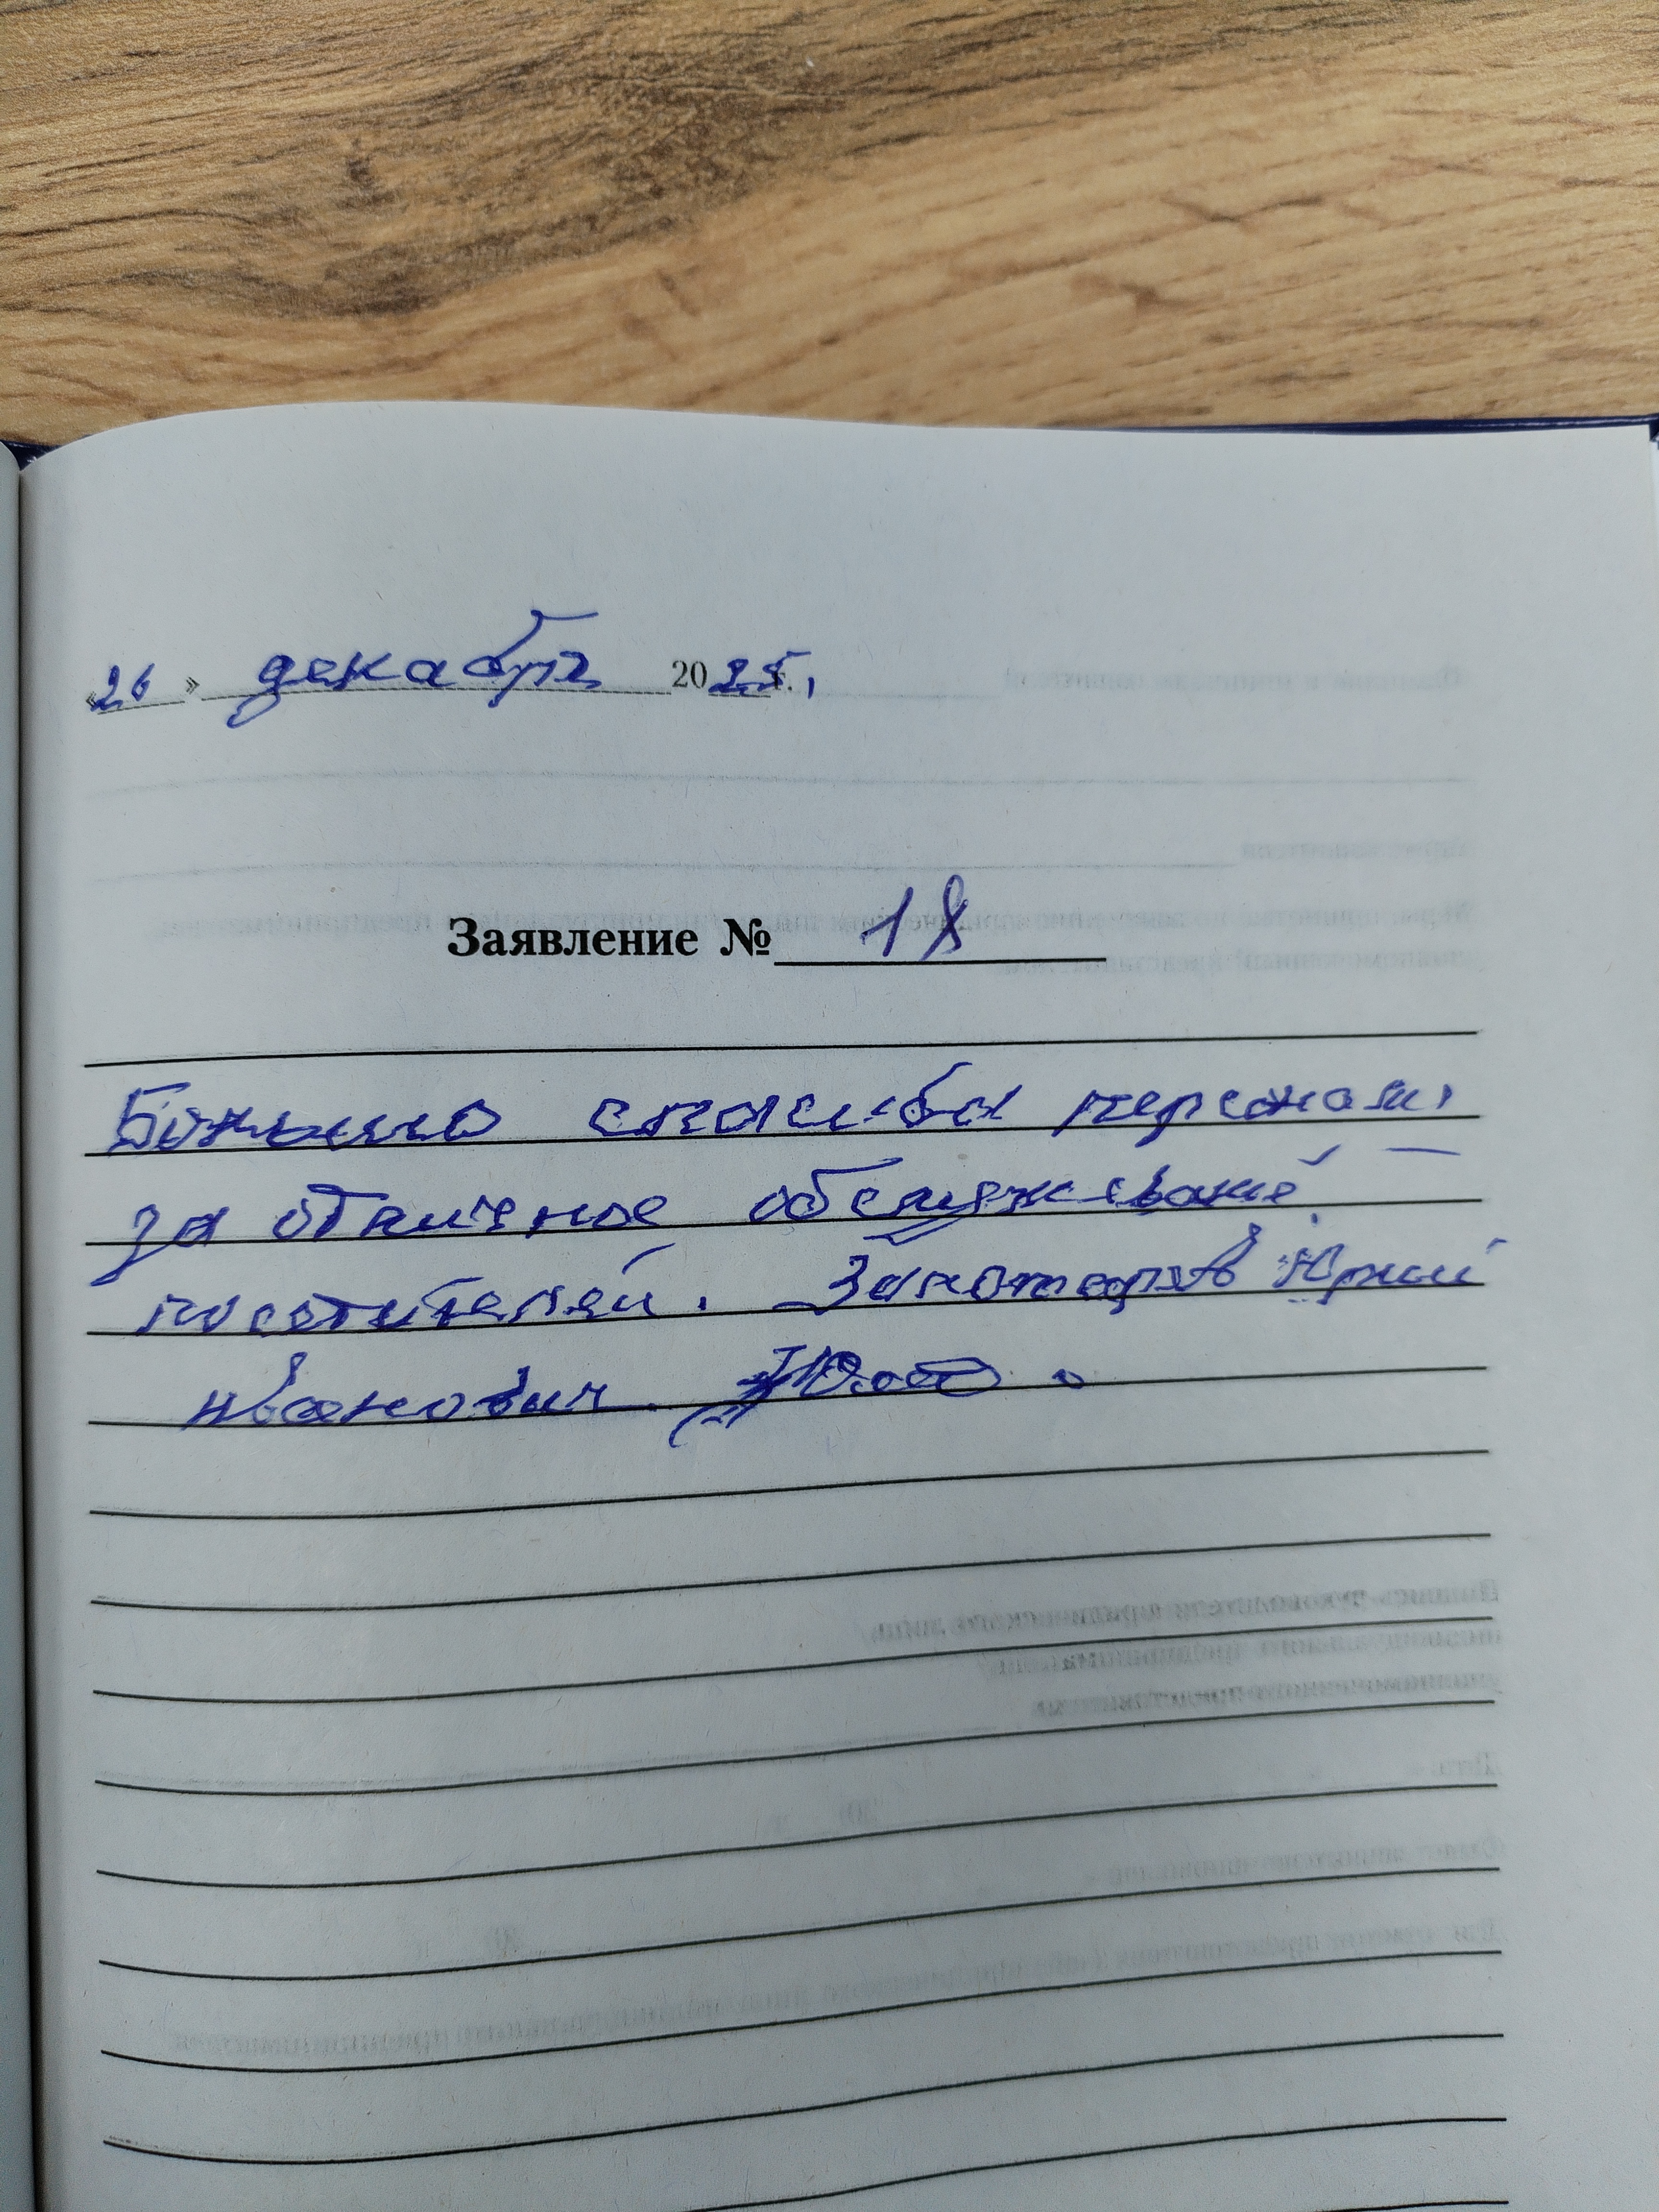 «26» декабря 2025 г.
Заявление № 18
Большое спасибо персоналу
за отличное обслуживание
посетителей. Юрий
Иванович.